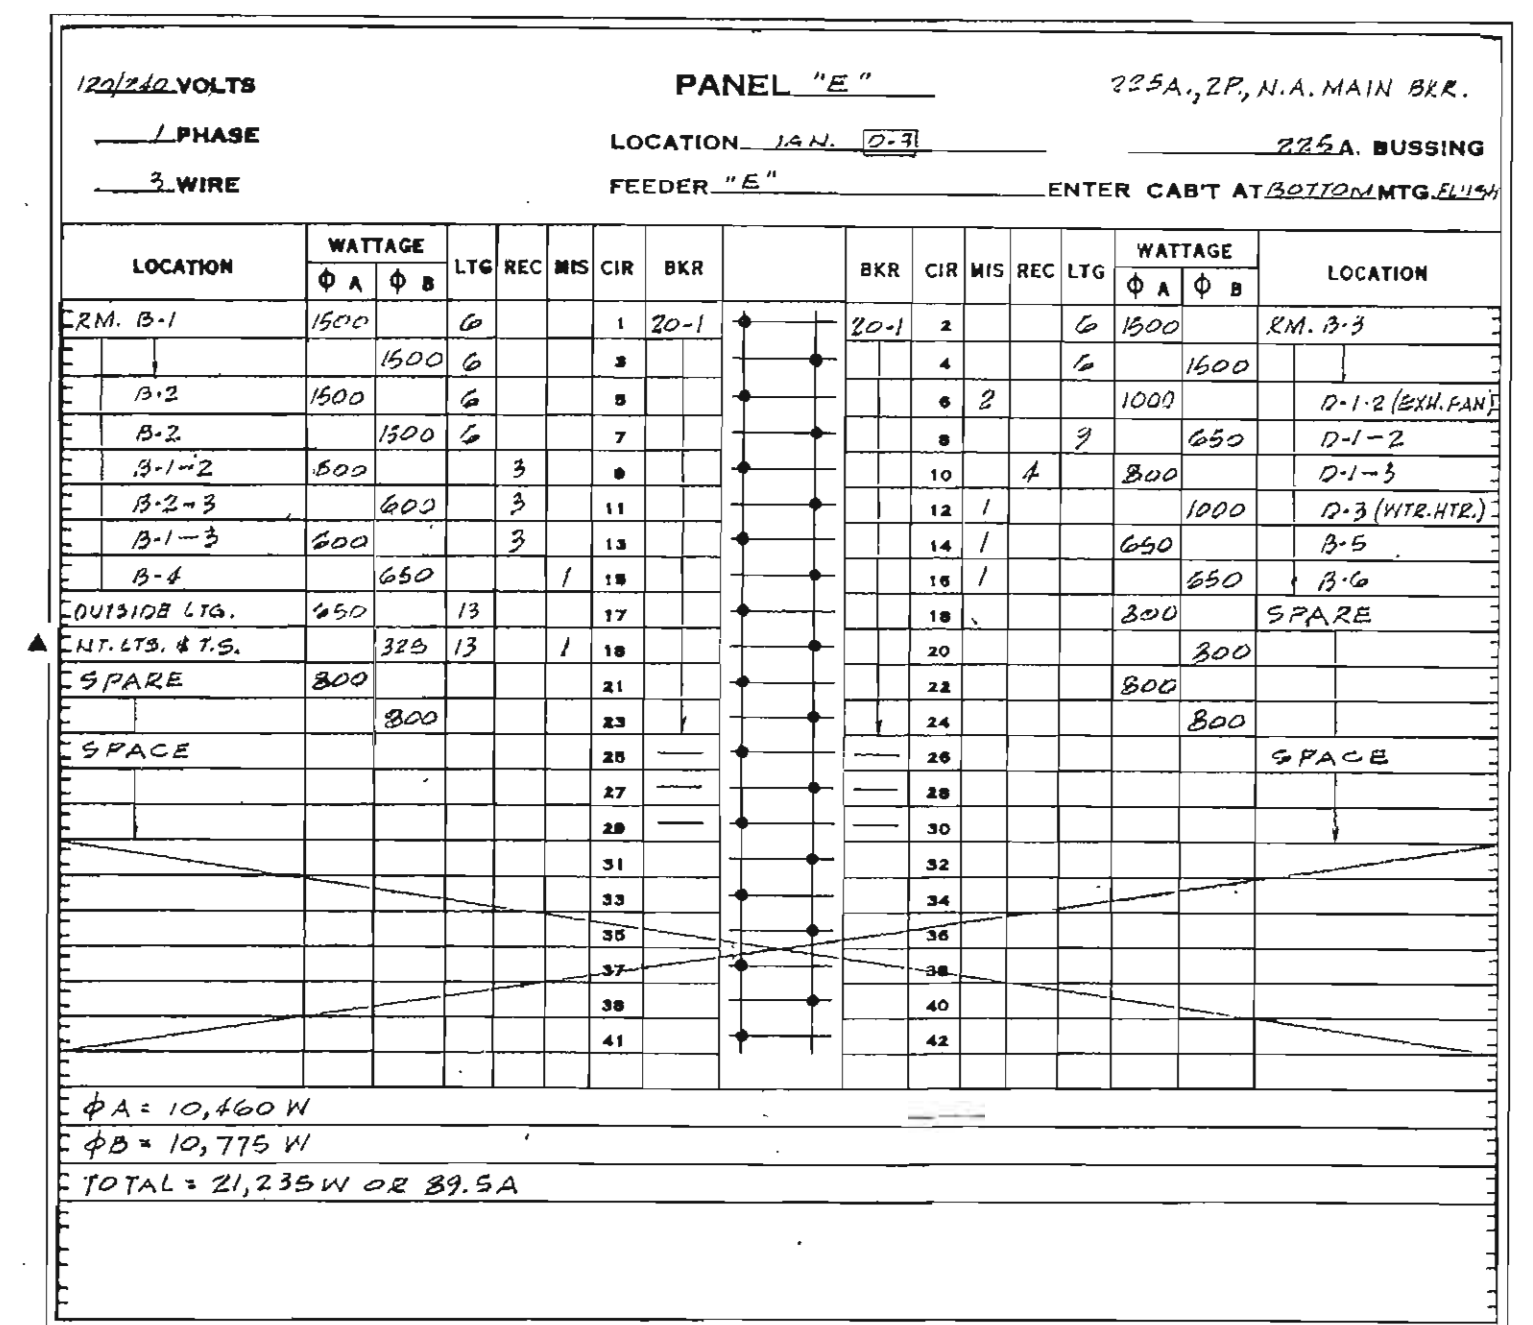 120/240 VOLTS PANEL "E" 225A., 2P., N.A. MAIN BKR.
1 PHASE LOCATION JAN. D-3 225 A. BUSSING
3 WIRE FEEDER "E" ENTER CAB'T AT BOTTOM MTG. FLUSH
LOCATION WATTAGE LTG REC MIS CIR BKR BKR CIR MIS REC LTG WATTAGE LOCATION
ϕ A ϕ B ϕ A ϕ B
RM. B-1 1500 6 1 20-1 20-1 2 6 1500 RM. B-3
1500 6 3 4 6 1500
B-2 1500 6 5 6 2 1000 D-1-2 (EXH. FAN)
B-2 1500 6 7 8 9 650 D-1-2
B-1-2 3 9 10 4 800 D-1-3
B-2-3 600 3 11 12 1 1000 D-3 (WTR. HTR.)
B-1-3 600 3 13 14 1 650 B-5
B-4 650 1 15 16 1 650 B-6
OUTSIDE LTG. 650 13 17 18 800 SPARE
NT. LTS. & T.S. 325 13 1 19 20 800
SPARE 800 21 22 800
800 23 24 800
SPACE 25 26 SPACE
27 28
29 30
31 32
33 34
35 36
37 38
39 40
41 42
ϕA = 10,460 W
ϕB = 10,775 W
TOTAL = 21,235 W OR 89.5A